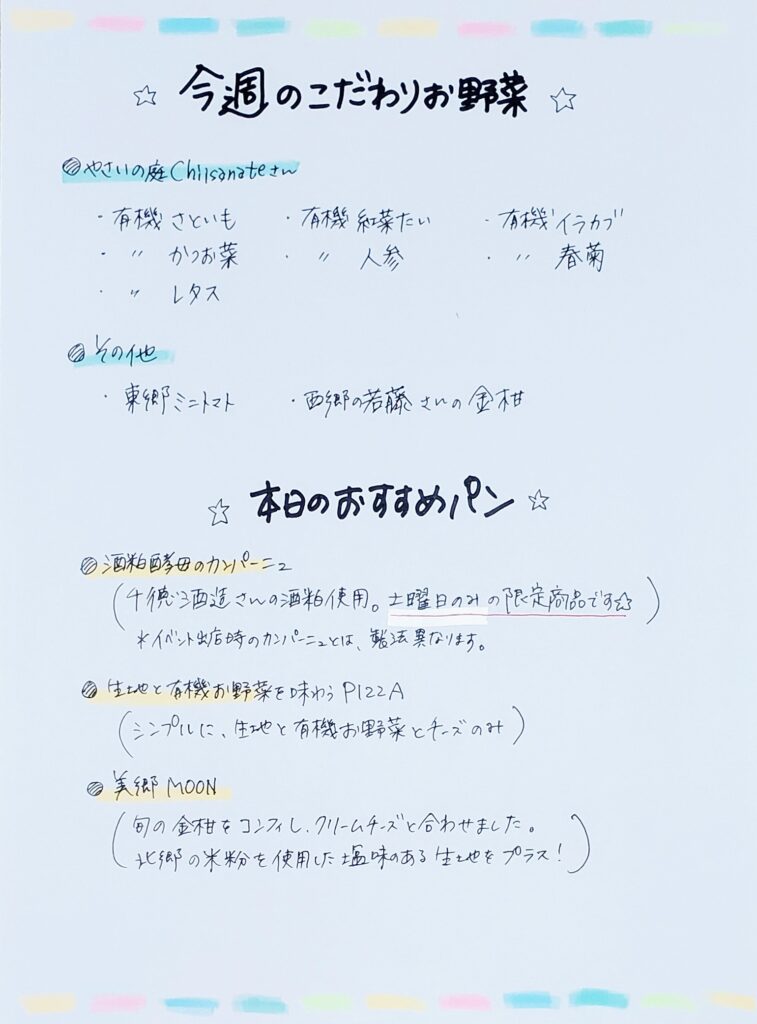 ☆ 今週のこだわりお野菜 ☆
やさいの庭Chiisanateさん
・有機 さといも ・有機 紅菜たい ・有機 イラカブ
・〃 かつお菜 ・〃 人参 ・〃 春菊
・〃 レタス
その他
・東郷ミニトマト ・西郷の若藤さんの金柑
☆ 本日のおすすめパン ☆
酒粕酵母のカンパーニュ
(千徳酒造さんの酒粕使用。土曜日のみの限定商品です☆)
*イベント出店時のカンパーニュとは、製法異なります。
生地と有機お野菜を味わうPIZZA
(シンプルに、生地と有機お野菜とチーズのみ)
美郷MOON
(旬の金柑をコンフィし、クリームチーズと合わせました。
北郷の米粉を使用した塩味のある生地をプラス!)